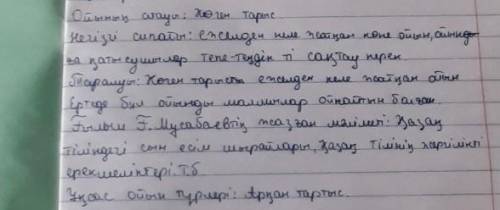 Ойының атауы: Көген тарыс
Негізгі сипаты: ежелден келе жатқан көне ойын, ойынды
қатысушылар тепе-теңдік ті сақтау керек.
Таралуы: Көген тарыс ежелден келе жатқан ойын
Ертеде бұл ойынды малшылар ойнайтын болған.
Ғылым Ғ. Мұсабаевтің жазған мәлімет: Қазақ
тіліндегі сын есім шырайлары, Қазақ тілінің көркімінкі
ерекшеліктері. Т.б
Ұқсас ойын түрлері: Арқан тартыс.